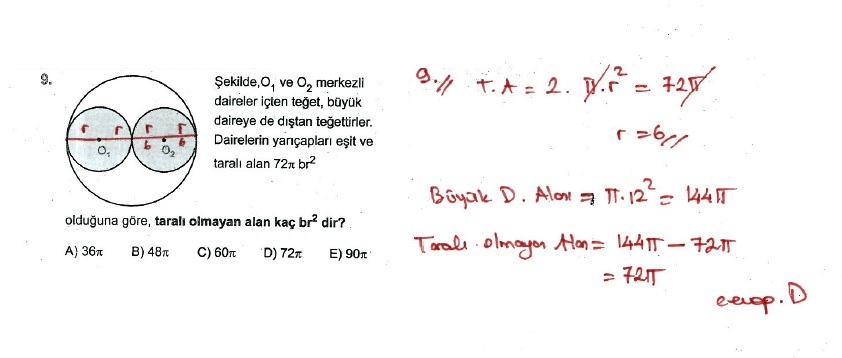 9.
Şekilde,O₁ ve O₂ merkezli
daireler içten teğet, büyük
daireye de dıştan teğettirler.
Dairelerin yarıçapları eşit ve
taralı alan 72π br²
r r r r
6 6
O₁ O₂
olduğuna göre, taralı olmayan alan kaç br² dir?
A) 36π B) 48π C) 60π D) 72π E) 90π
9.// T.A = 2. π.r² = 72π
r = 6//
Büyük D. Alanı = π.12² = 144π
Taralı olmayan Alan = 144π − 72π
= 72π
cevap. D